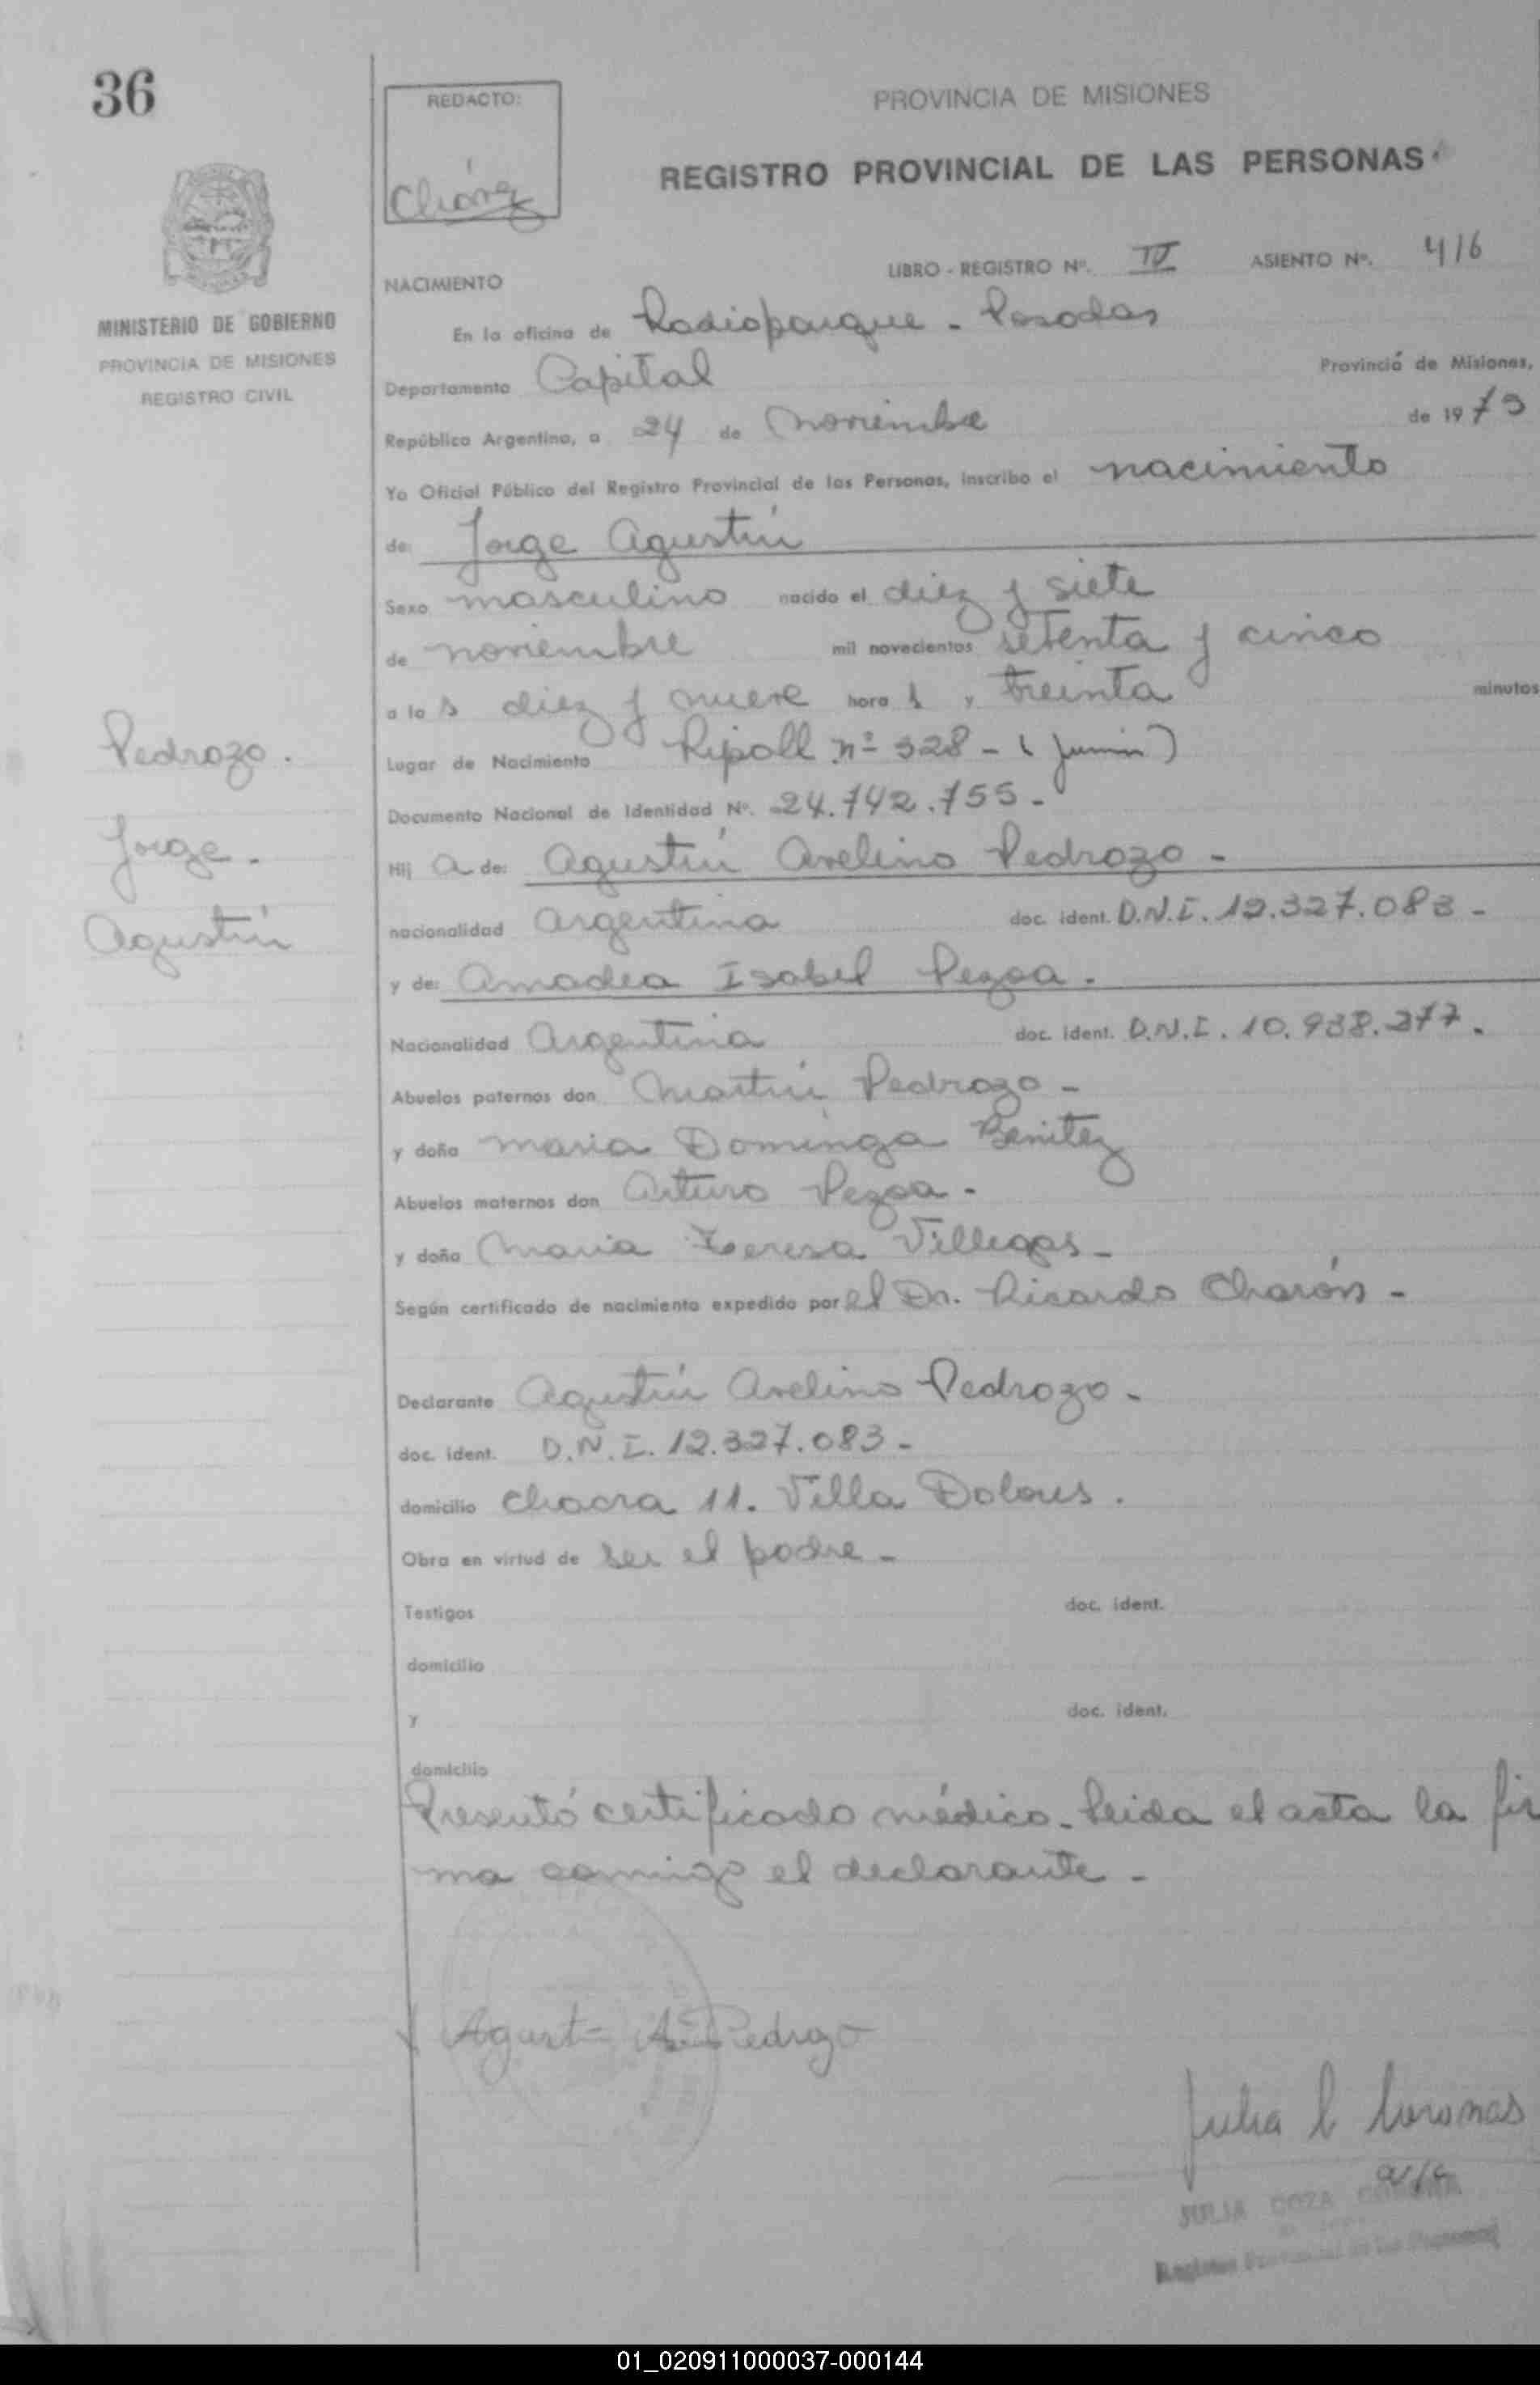 36
REDACTO:
Chávez
PROVINCIA DE MISIONES
REGISTRO PROVINCIAL DE LAS PERSONAS
MINISTERIO DE GOBIERNO
PROVINCIA DE MISIONES
REGISTRO CIVIL
NACIMIENTO LIBRO - REGISTRO Nº. IV ASIENTO Nº. 416
En la oficina de Radioparque - Posadas
Departamento Capital Provincia de Misiones,
República Argentina, a 24 de noviembre de 1975
Yo Oficial Público del Registro Provincial de las Personas, inscribo el nacimiento
de: Jorge Agustín
Sexo masculino nacido el diez y siete
de noviembre mil novecientos setenta y cinco
a las diez y nueve hora s y treinta minutos
Lugar de Nacimiento Ripoll nº 328 - (Junin)
Documento Nacional de Identidad Nº. 24.742.755.-
Hij a de: Agustín Avelino Pedrozo -
nacionalidad argentina doc. ident. D.N.I. 12.327.083 -
y de: Amadea Isabel Pezoa.
Nacionalidad Argentina doc. ident. D.N.I. 10.938.277.
Abuelos paternos don Martín Pedrozo -
y doña Maria Dominga Benitez
Abuelos maternos don Arturo Pezoa -
y doña Maria Teresa Villegas -
Según certificado de nacimiento expedido por el Dr. Ricardo Charón -
Declarante Agustín Avelino Pedrozo -
doc. ident. D.N.I. 12.327.083 -
domicilio chacra 11. Villa Dolores.
Obra en virtud de ser el padre -
Testigos doc. ident.
domicilio
y doc. ident.
domicilio
Presentó certificado médico. Leida el acta la fir
ma conmigo el declarante -
Pedrozo.
Jorge.
Agustín
Agustín A. Pedrozo
Julia C Coronas
JULIA
Registro Provincial de las Personas
01_020911000037-000144